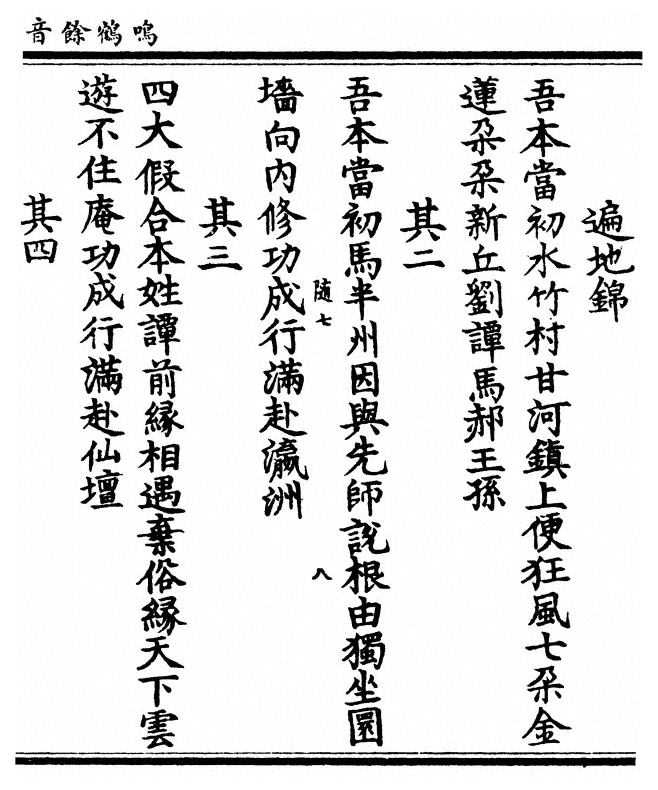 鳴鶴餘音
遍地錦
吾本當初水竹村甘河鎮上便狂風七朶金
蓮朶朶新丘劉譚馬郝王孫
其二
吾本當初馬半州因與先師說根由獨坐圜
墻向內修功成行滿赴瀛洲
其三
四大假合本姓譚前緣相遇棄俗緣天下雲
遊不住庵功成行滿赴仙壇
其四
隨七
八